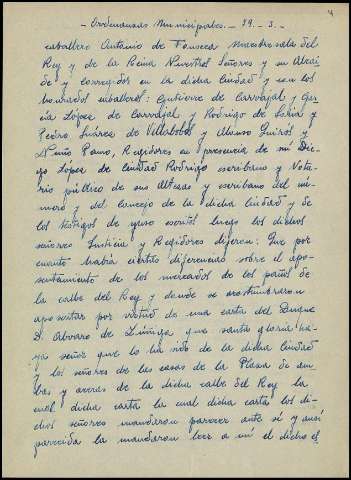 4
- Ordenanzas Municipales. - 19. - 3. -
caballero Antonio de Fonseca Maestresala del
Rey y de la Reina Nuestros Señores y su Alcai-
de y corregidor en la dicha Ciudad y con los
honrados caballeros: Gutierre de Carvajal y Gar-
cía López de Carvajal y Rodrigo de Loria y
Pedro Suárez de Villalobos y Alonso Quirós y
Nuño Pamo, Regidores en presencia de mí Die-
go López de Ciudad Rodrigo escribano y Nota-
rio público de sus Altezas y escribano del nú-
mero y del concejo de la dicha Ciudad y de
los testigos de yuso escritos luego los dichos
señores Justicia y Regidores dijeron: Que por
cuanto había ciertas diferencias sobre el apo-
sentamiento de los mercados de los paños de
la calle del Rey y donde se acostumbraron
aposentar por virtud de una carta del Duque
D. Alvaro de Zúñiga que santa gloria ha-
ya señor que lo ha sido de la dicha Ciudad
y los señores de las casas de la Plaza de am-
bas y aceras de la dicha calle del Rey la
cual dicha carta la cual dicha carta los di-
chos señores mandaron parecer ante sí y ansí
parecida la mandaron leer a mí el dicho es